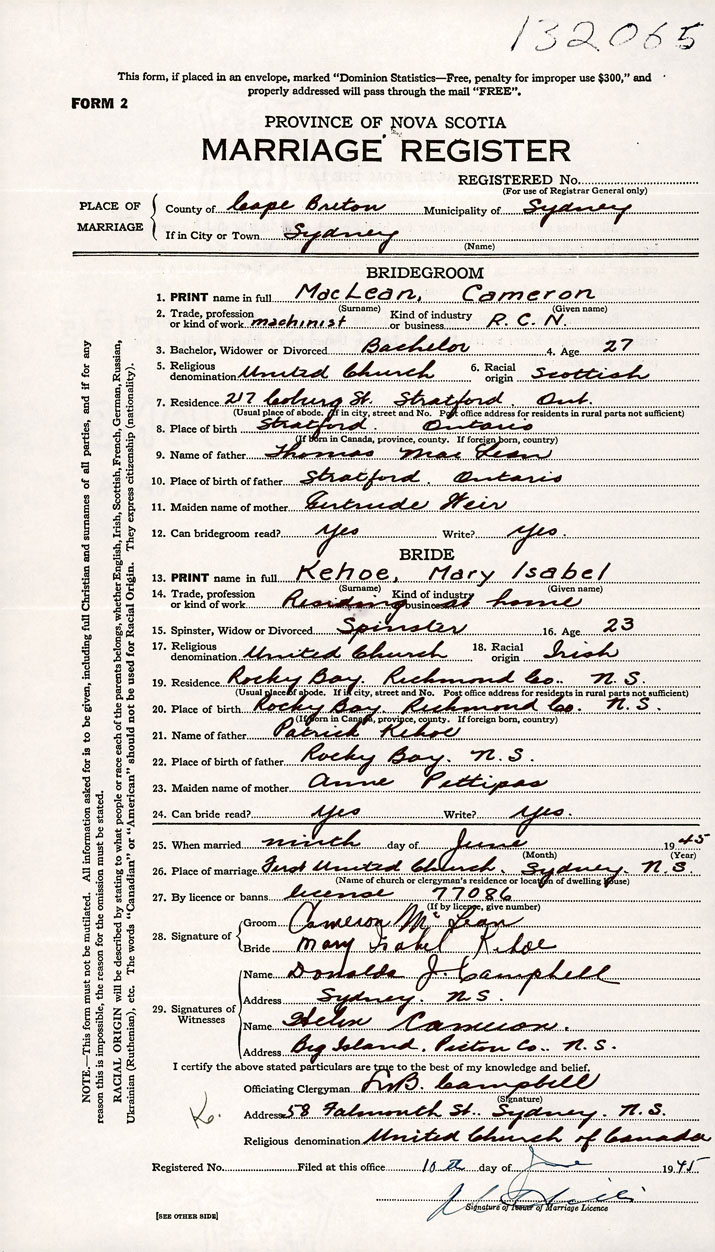 132065
This form, if placed in an envelope, marked "Dominion Statistics—Free, penalty for improper use $300," and
properly addressed will pass through the mail "FREE".
FORM 2
PROVINCE OF NOVA SCOTIA
MARRIAGE REGISTER
REGISTERED No.
(For use of Registrar General only)
PLACE OF MARRIAGE
County of Cape Breton Municipality of Sydney
If in City or Town Sydney
(Name)
BRIDEGROOM
1. PRINT name in full MacLean, Cameron
(Surname) (Given name)
2. Trade, profession or kind of work machinist Kind of industry or business R.C.N.
3. Bachelor, Widower or Divorced Bachelor 4. Age 27
5. Religious denomination United Church 6. Racial origin Scottish
7. Residence 217 Coburg St. Stratford Ont.
(Usual place of abode. If in city, street and No. Post office address for residents in rural parts not sufficient)
8. Place of birth Stratford. Ontario
(If born in Canada, province, county. If foreign born, country)
9. Name of father Thomas MacLean
10. Place of birth of father Stratford. Ontario
11. Maiden name of mother Gertrude Weir
12. Can bridegroom read? Yes Write? Yes.
BRIDE
13. PRINT name in full Kehoe, Mary Isabel
(Surname) (Given name)
14. Trade, profession or kind of work Kind of industry or business Residing at home
15. Spinster, Widow or Divorced Spinster 16. Age 23
17. Religious denomination United Church 18. Racial origin Irish
19. Residence Rocky Bay. Richmond Co. N.S.
(Usual place of abode. If in city, street and No. Post office address for residents in rural parts not sufficient)
20. Place of birth Rocky Bay. Richmond Co. N.S.
(If born in Canada, province, county. If foreign born, country)
21. Name of father Patrick Kehoe
22. Place of birth of father Rocky Bay. N.S.
23. Maiden name of mother Anne Pettipas
24. Can bride read? Yes Write? Yes.
25. When married ninth day of June 1945
(Month) (Year)
26. Place of marriage First United Church. Sydney. N.S.
(Name of church or clergyman's residence or location of dwelling house)
27. By licence or banns license 77086
(If by licence, give number)
28. Signature of
Groom Cameron McLean
Bride Mary Isabel Kehoe
29. Signatures of Witnesses
Name Donalda J. Campbell
Address Sydney. N.S.
Name Helen Cameron.
Address Big Island. Pictou Co. N.S.
I certify the above stated particulars are true to the best of my knowledge and belief.
Officiating Clergyman Campbell
(Signature)
Address 58 Falmouth St. Sydney. N.S.
Religious denomination United Church of Canada
Registered No. Filed at this office 10th day of June 1945
Signature of Issuer of Marriage Licence
[SEE OTHER SIDE]
NOTE.—This form must not be mutilated. All information asked for is to be given, including full Christian and surnames of all parties, and if for any
reason this is impossible, the reason for the omission must be stated.
RACIAL ORIGIN will be described by stating to what people or race each of the parents belongs, whether English, Irish, Scottish, French, German, Russian,
Ukrainian (Ruthenian), etc. The words "Canadian" or "American" should not be used for Racial Origin. They express citizenship (nationality).